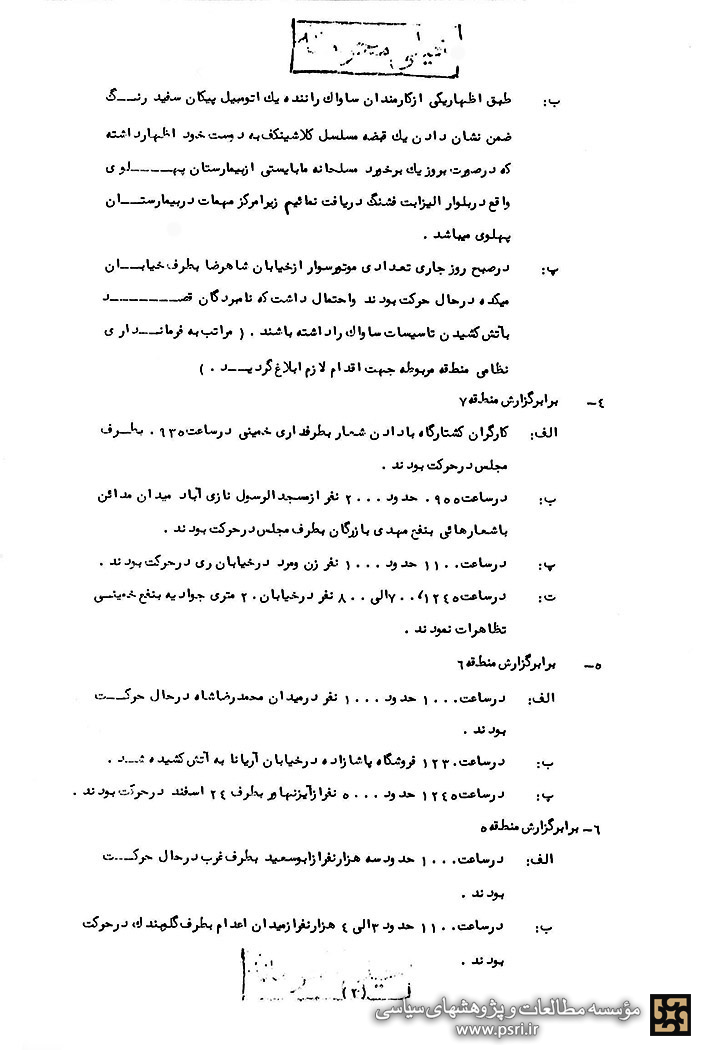 ب: طبق اظهاریکی ازکارمندان ساواك راننده یك اتومبیل پیکان سفید رنـــگ
ضمن نشان دادن یك قبضه مسلسل کلاشینکف به دوست خود اظهارداشته
که درصورت بروز یك برخورد مسلحانه مابایستی ازبیمارستان پهـــلوی
واقع دربلوار الیزابت فشنگ دریافت نمائیم زیرامرکز مهمات دربیمارستـــان
پهلوی میباشد .
پ: درصبح روز جاری تعدادی موتورسوار ازخیابان شاهرضا بطرف خیابـــان
میکده درحال حرکت بودند واحتمال داشت که نامبردگان قصـــد
بآتش کشیدن تاسیسات ساواك راداشته باشند . ( مراتب به فرمانـــداری
نظامی منطقه مربوطه جهت اقدام لازم ابلاغ گردیـــد . )
٤- برابرگزارش منطقه ۷
الف: کارگران کشتارگاه بادادن شعار بطرفداری خمینی درساعت ۰۹۳٥ بطـرف
مجلس درحرکت بودند .
ب: درساعت ۰۹٥٥ حدود ۲۰۰۰ نفر ازمسجدالرسول نازی آباد میدان مدائن
باشعارهائی بنفع مهدی بازرگان بطرف مجلس درحرکت بودند .
پ: درساعت ۱۱۰۰ حدود ۱۰۰۰ نفر زن ومرد درخیابان ری درحرکت بودند .
ت: درساعت ۱۲٤٥، ۷۰۰ الی ۸۰۰ نفر درخیابان ۲۰ متری جوادیه بنفع خمینـی
تظاهرات نمودند .
٥- برابرگزارش منطقه ٦
الف: درساعت ۱۰۰۰ حدود ۱۰۰۰ نفر درمیدان محمدرضاشاه درحال حرکـــت
بودند .
ب: درساعت ۱۲۳۰ فروشگاه پاشازاده درخیابان آریانا به آتش کشیده شـــد .
پ: درساعت ۱۲٤٥ حدود ٥۰۰۰ نفرازآیزنهاور بطرف ۲٤ اسفند درحرکت بودند .
٦- برابرگزارش منطقه ٥
الف: درساعت ۱۰۰۰ حدود سه هزارنفرازابوسعید بطرف غرب درحال حرکـــت
بودند .
ب: درساعت ۱۱۰۰ حدود ۳الی ٤ هزارنفرازمیدان اعدام بطرف گلوبندك درحرکت
بودند .
مؤسسه مطالعات و پژوهشهای سیاسی
www.psri.ir